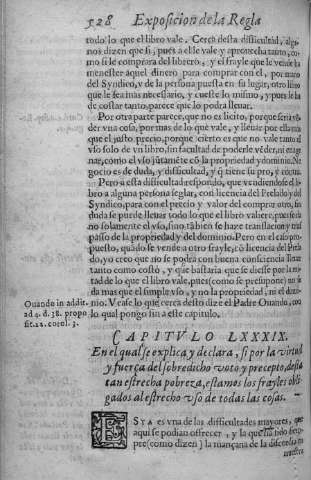 528 Exposicion de la Regla
todo lo que el libro vale. Cerca desta difficultad, algu-
nos dizen que si, pues a el le vale y aprouecha tanto, co-
mo si le comprara del librero, y el frayle que le vende ha
menester aquel dinero para comprar con el, por mano
del Syndico, v de la persona puesta en su lugar, otro libro
que le sea mas necessario, y cueste lo mismo, y pues le ha
de costar tanto, parece que lo podra lleuar.
Por otra parte parece, que no es licito, porque seria vẽ-
der vna cosa, por mas de lo que vale, y lleuar por ella mas
que el justo precio, porque cierto es que no vale tanto el
vso solo de vn libro, sin facultad de poderle vẽder, ni enage
nar, como el vso jũtamẽte cõ la propriedad y dominio. Ne
gocio es de duda, y difficultad, y q̃ tiene su pro, y contra.
Pero a esta difficultad respondo, que vendiendose el li-
bro a alguna persona seglar, con licencia del Prelado y del
Syndico, para con el precio y valor del comprar otro, sin
duda se puede lleuar todo lo que el libro valiere, pues se da
no solamente el vso, sino tãbien se haze translacion y tras
passo de la propriedad y del dominio. Pero en el caso pro-
puesto, quãdo se vende a otro frayle, cõ licencia del Prela
do, yo creo que no se podra con buena consciencia lleuar
tanto como costò, y que bastaria que se diesse por la mi-
tad de lo que el libro vale, pues (como se presupone) no se
da mas que el simple vso, y no la propriedad, ni el domi-
nio. Vease lo que cerca desto dize el Padre Ouando, con
lo qual pongo fin a este capitulo.
Ouando in addit.
ad 4. d. 38. propo
sit. 22. corol. 3.
CAPITVLO LXXXIX.
En el qual se explica y declara, si por la virtud
y fuerça del sobredicho voto y precepto, desta
tan estrecha pobreza, estamos los frayles obli-
gados al estrecho vso de todas las cosas.
ESTA es vna de las difficultades mayores, que
aqui se podian ofrecer, y la que ha sido siem-
pre (como dizen) la mançana de la discordia en
nuestra